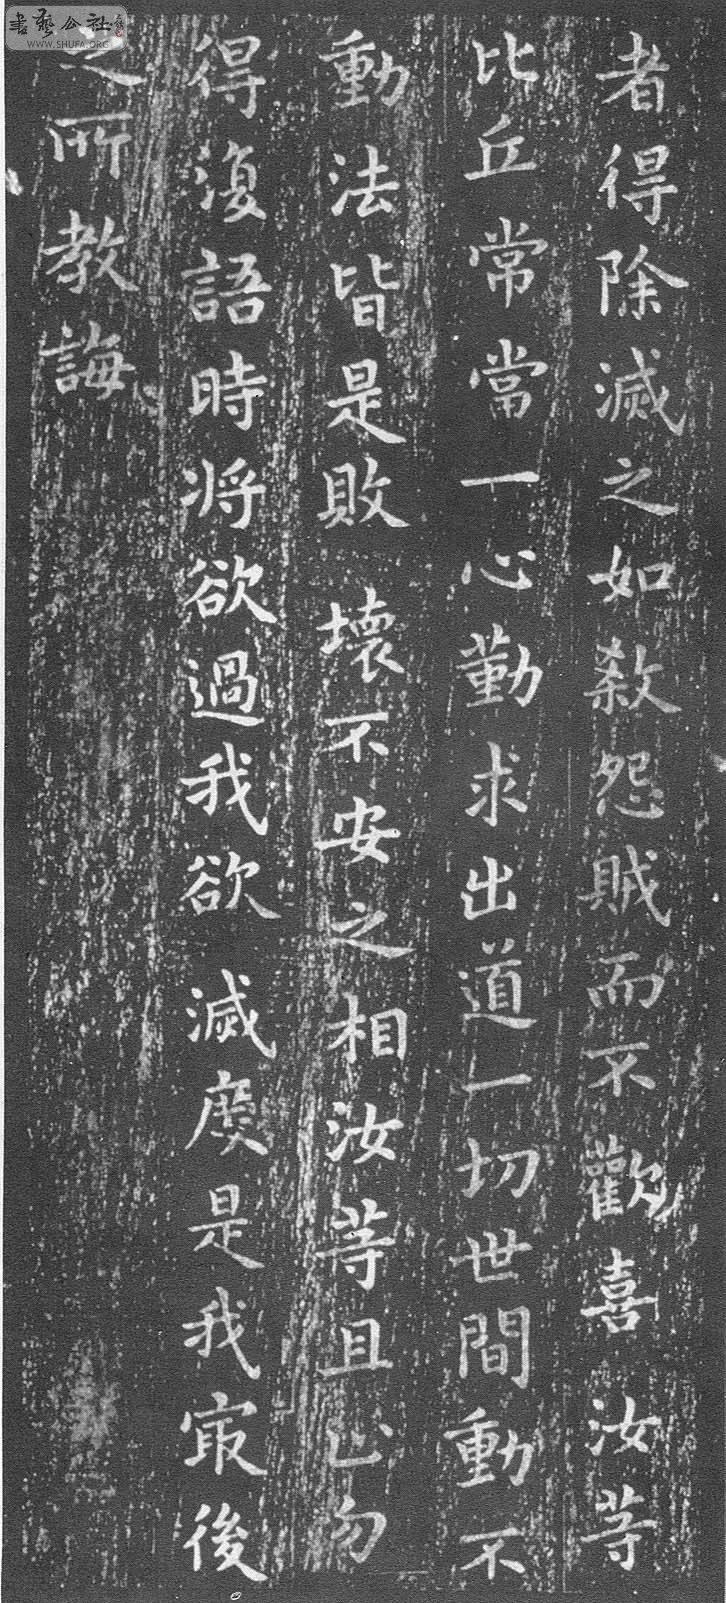 者得除滅之如敎怨賊而不歡喜汝等
比丘常當一心勤求出道一切世間動不
動法皆是敗壞不安之相汝等且止勿
得復語時将欲過我欲滅度是我㝡後
之所教誨
書藝公社
WWW.SHUFA.ORG